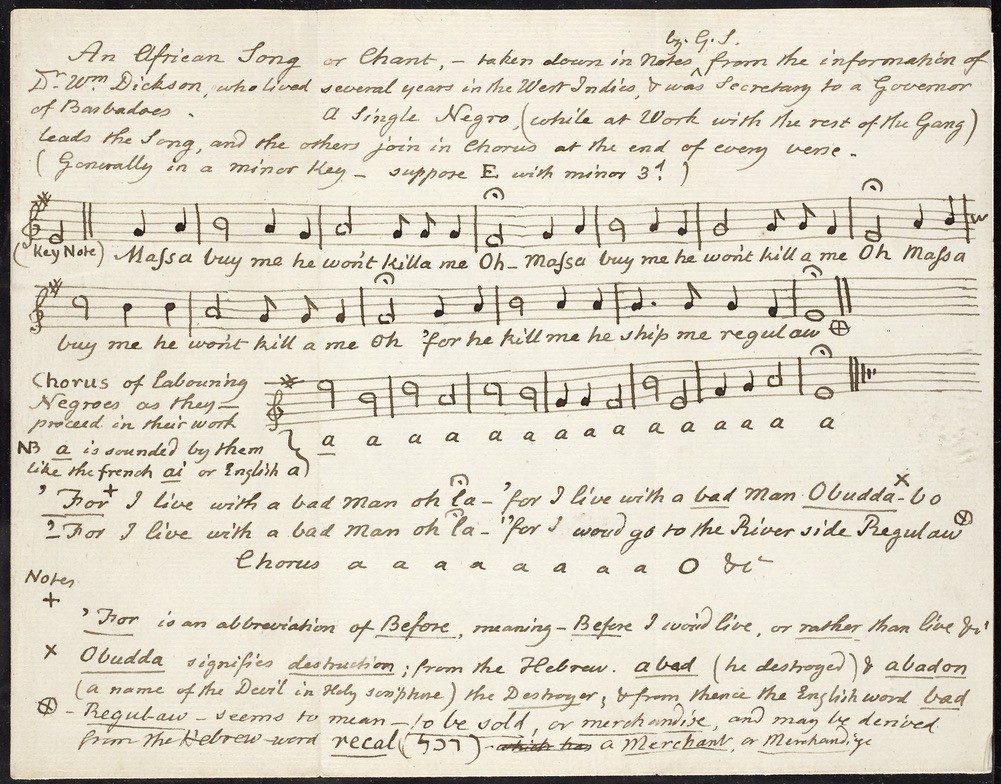 by G.S.
An African Song or Chant, – taken down in Notes, from the information of
Dr. Wm Dickson, who lived several years in the West Indies, & was Secretary to a Governor
of Barbadoes. A Single Negro, (while at Work with the rest of the Gang)
leads the Song, and the others join in Chorus at the end of every verse.
(Generally in a minor Key – suppose E with minor 3d.)
(Key Note) Maſsa buy me he won't killa me Oh – Maſsa buy me he won't kill a me Oh Maſsa
buy me he won't kill a me Oh 'for he kill me he ship me regulaw ⊕
Chorus of labouring
Negroes as they –
proceed in their work
NB a is sounded by them
like the french ai or English a)
a a a a a a a a a a a a a
'For+ I live with a bad man oh la – 'for I live with a bad Man Obudda-bo x
'For I live with a bad man oh la – 'for I would go to the River side Regulaw ⊗
Chorus a a a a a a a a O &c
Notes
+
'For is an abbreviation of Before, meaning – Before I would live, or rather than live &c
x Obudda signifies destruction; from the Hebrew. abad (he destroyed) & abadon
(a name of the Devil in Holy scripture) the Destroyer; & from thence the English word bad
⊗ – Regulaw – seems to mean – to be sold, or merchandise, and may be derived
from the Hebrew word recal (רכל) – which has a Merchant, or Merchandize